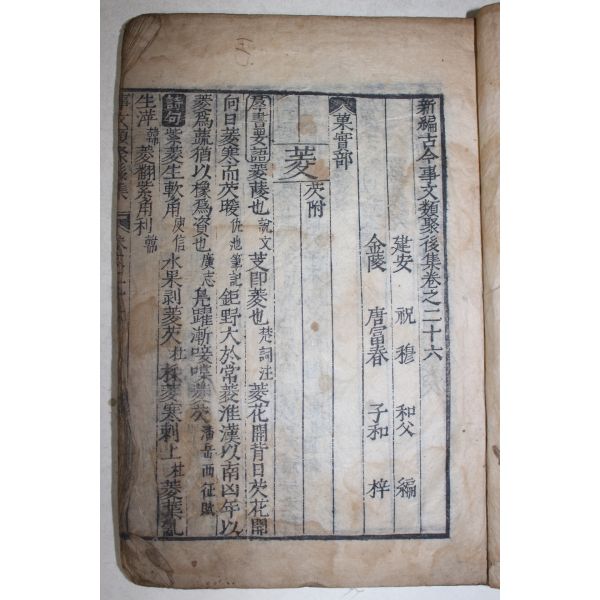 新編古今事文類聚後集卷之二十六
建安 祝 穆 和父 編
金陵 唐富春 子和 梓
菓實部
菱 芡附
群書要語菱蔆也說文芰即菱也楚詞注菱花開背日芡花開
向日菱寒而芡暖仇池筆記鉅野大於常菱淮漢以南凶年以
菱爲蔬猶以橡爲資也廣志鳧躍漸唼喋菱芡潘岳西征賦
詩句紫菱生軟角庾信水果剥菱芡杜菱寒刺上杜菱葉亂
生萍韓菱翻紫角利韓
事文類聚後集